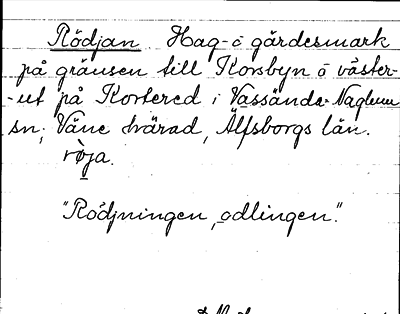 Rödjan Hag- o gärdesmark
på gränsen till Korsbyn o väster-
-ut på Kortered i Vassända-Naglum
sn, Väne härad, Älfsborgs län.
röja.
"Rödjningen, odlingen."